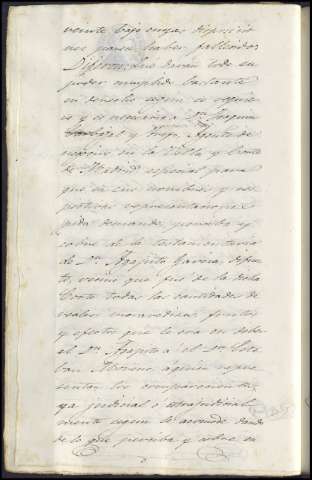 viente bajo cuyas disposicio
nes puren haber fallecidos
Dijeron: Que davan todo su
poder cumplido bastante
en derecho segun se requie
re y es necesario a Dn. Joaquin
y Trapo, Agente de
negocios en la Villa y Corte
de Madrid especial para
que en sus nombres y res
pectivas representaciones
pida demande, perciba y
cobre de la testamentaria
de Dn. Agapito Garcia, difun
to, vecino que fue de la dicha
Corte todas las cantidades de
reales maravedises frutos
y efectos que le era en deber
el Dn. Agapito a el Dn. Este
ban Moreno, a quien repre
sentan los comparecientes
ya judicial o extrajudicial
mente segun le acomode dando
de lo que perciba y cobre en